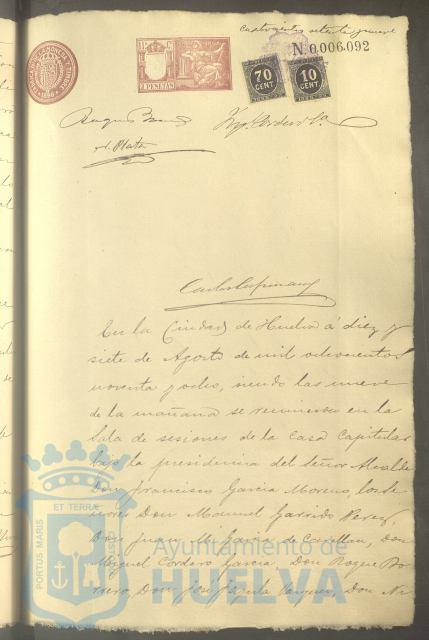 cuatrocientos setenta y nueve
N. 0.006.092
2 PESETAS
70 CENT
10 CENT
A. Plata
En la Ciudad de Huelva á diez y
siete de Agosto de mil ochocientos
noventa y ocho, siendo las nueve
de la mañana se reunieron en la
Sala de sesiones de la Casa Capitular
bajo la presidencia del Señor Alcalde
Don Francisco García Moreno, los Se
ñores Don Manuel Garrido Perez,
Don Juan M. García de Castellon, Don
Miguel Cordero García, Don Roque Bo
rrero, Don José Vazquez, Don Ni
PORTUS MARIS ET TERRÆ
Ayuntamiento de
HUELVA